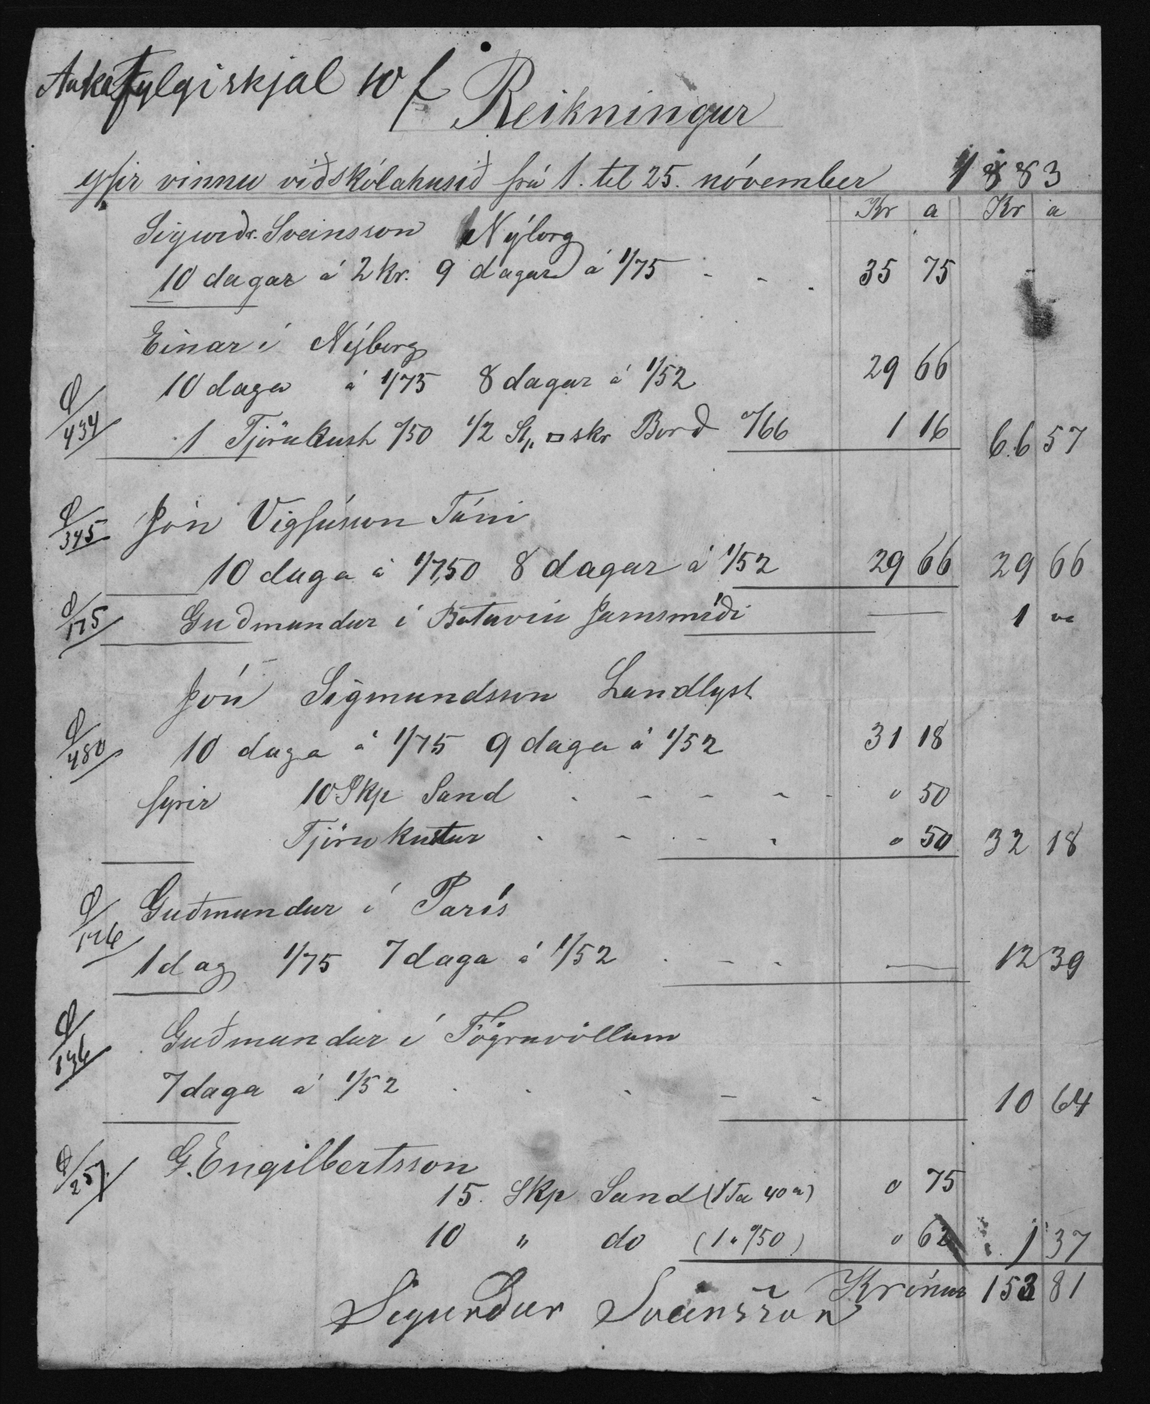 Aukafylgiskjal 10 f
Reikningur
yfir vinnu við skólahúsið frá 1. til 25. nóvember 1883
Kr a Kr a
Sigurðr. Sveinsson Nýborg
10 dagar á 2 kr. 9 dagar á 1/75 - - . 35 75
Einar í Nýborg
10 daga á 1/75 8 dagar á 1/52 29 66
1 Tjörukúst 0/50 1/2 St,, □ skr Borð 0/66 1 16 66 57
434
345 Jón Vigfússon Túni
10 daga á 1/7,50 8 dagar á 1/52 29 66 29 66
175 Guðmundur í Batavíu Járnsmíði — 1 "
Jón Sigmundsson Landlyst
480 10 daga á 1/75 9 daga á 1/52 31 18
fyrir 10 Skp Sand . - - - - . " 50
Tjöru kustur . - . . " 50 32 18
176 Guðmundur í París
1 dag 1/75 7 daga á 1/52 . - - . — 12 39
196 Guðmundur í Fögruvöllum
7 daga á 1/52 . . . - - 10 64
25 G. Engilbertsson
15. Skp Sand (1 Ta 40 a) 0 75
10 " do (1 " 0/50) " 62 1 37
Krónur 153 81
Sigurður Sveinsson